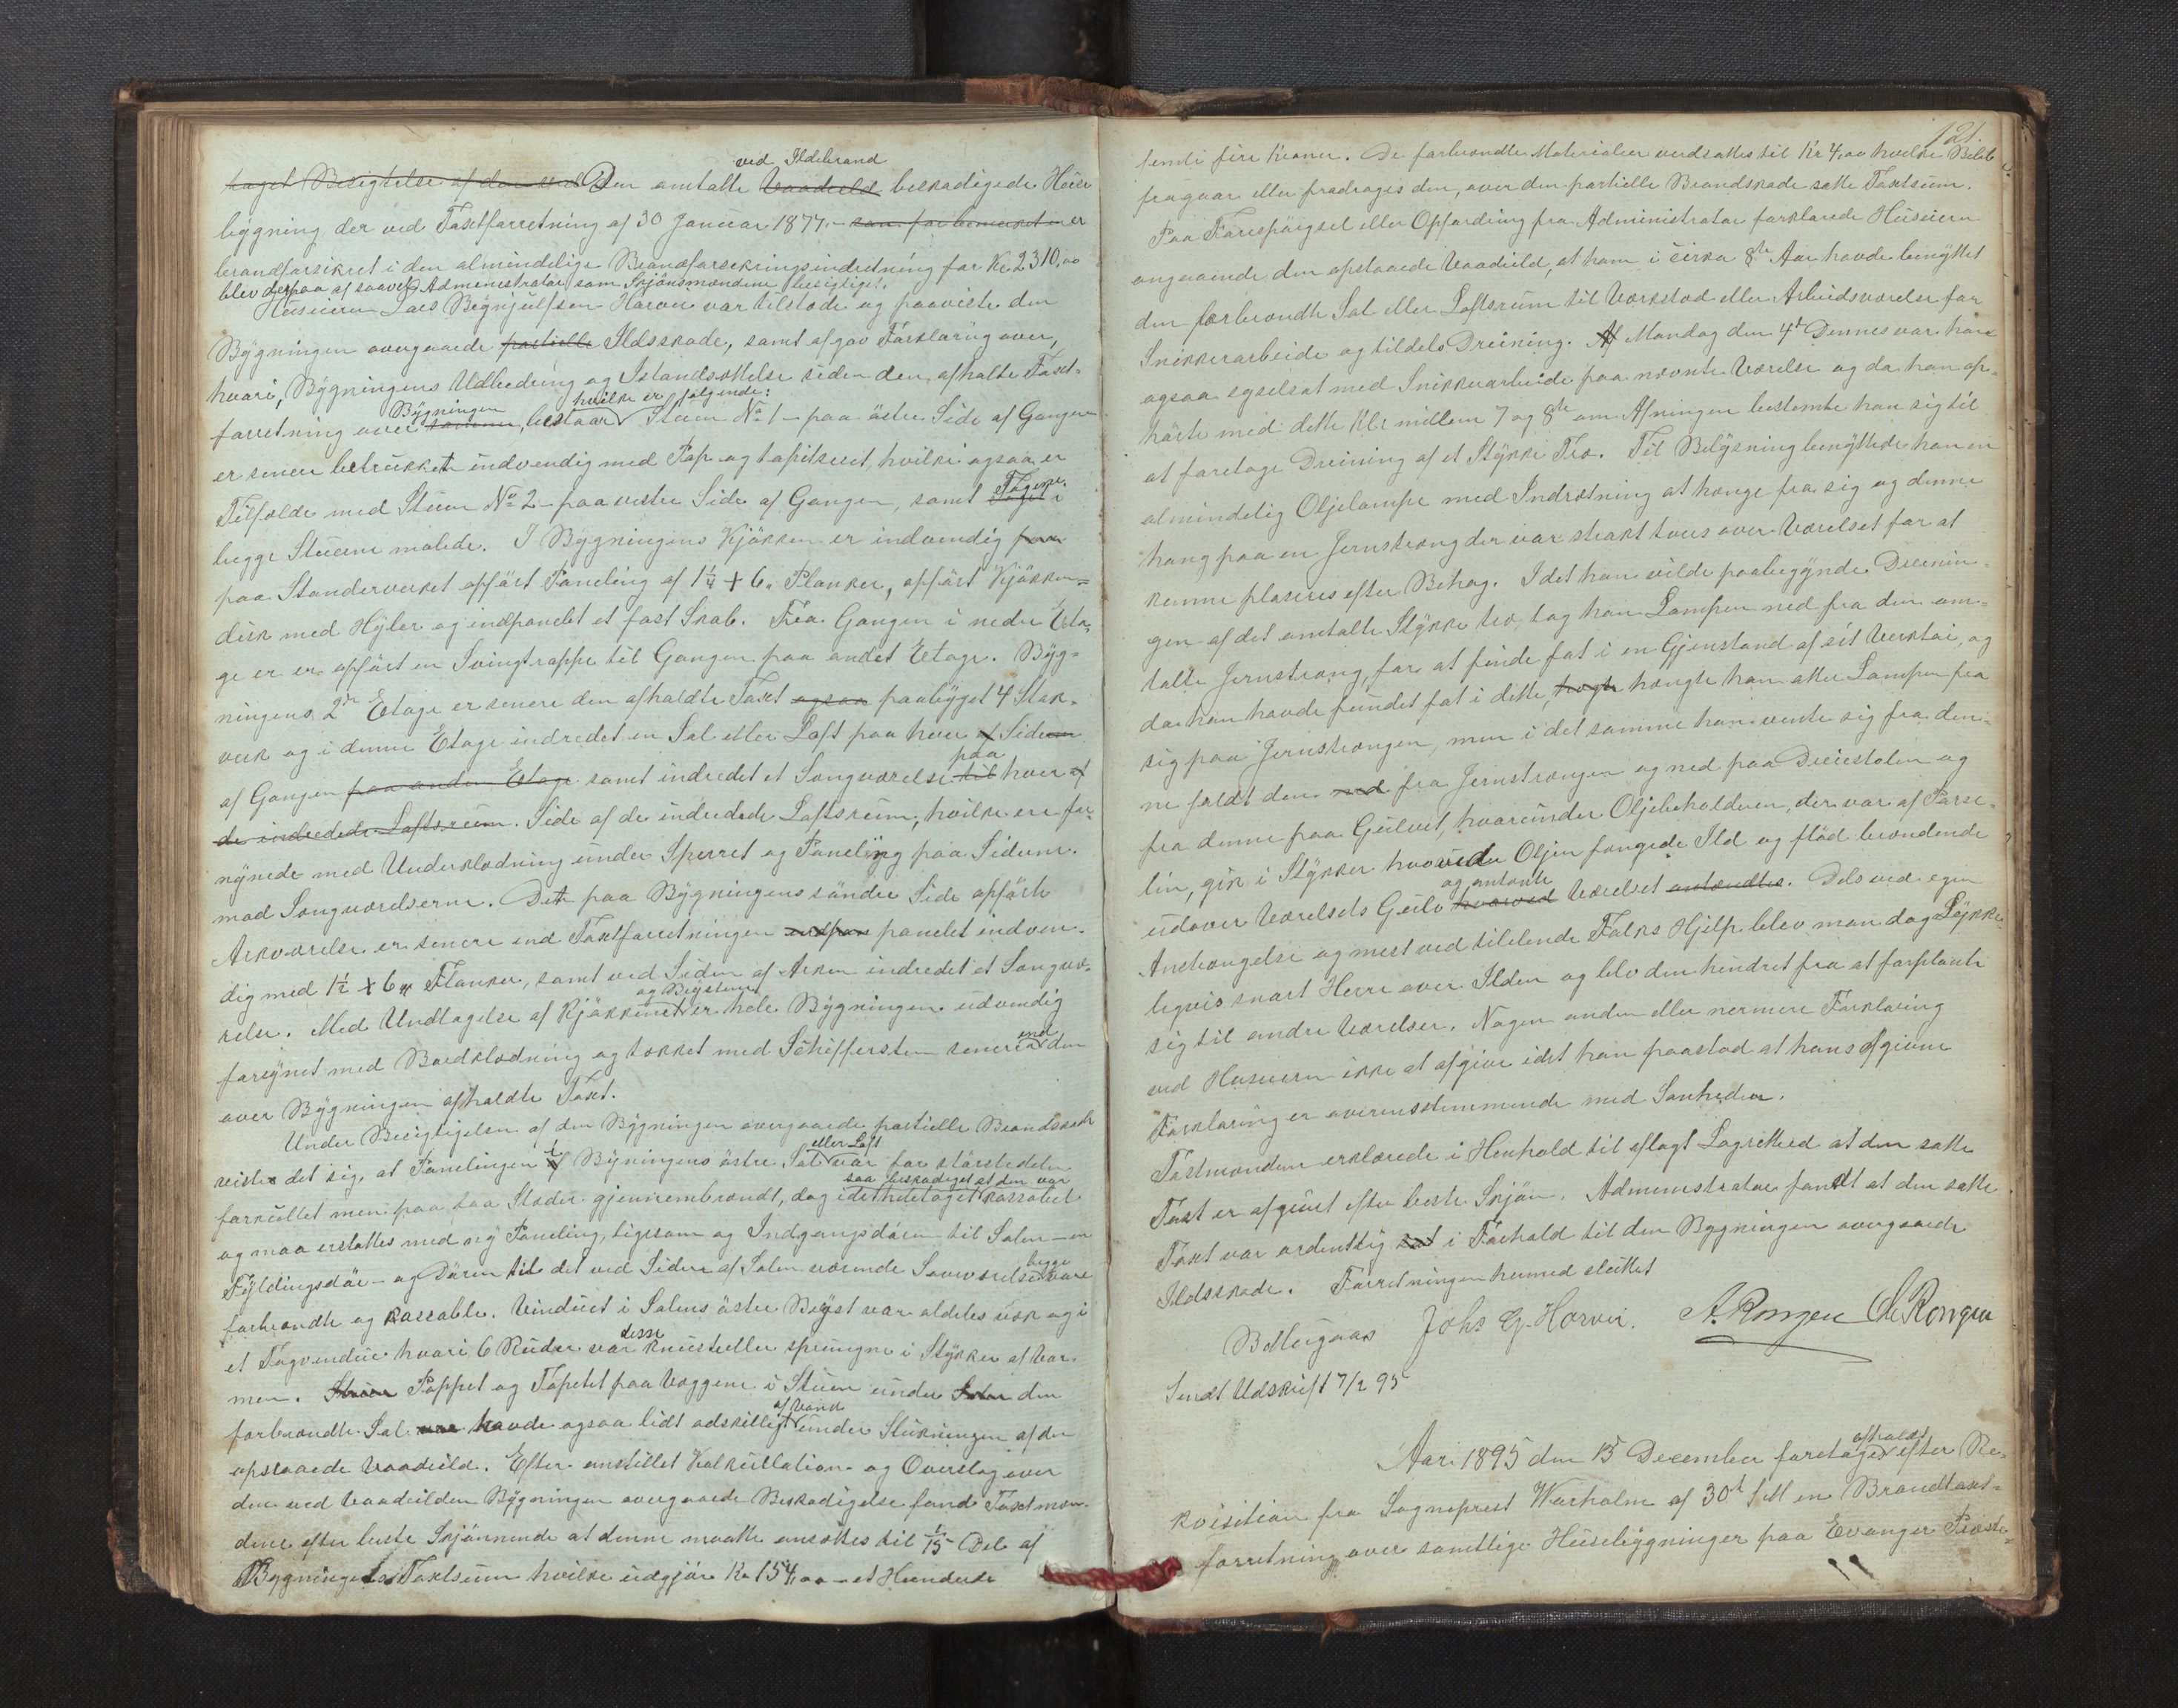 ved Ildebrand
taget Besigtelse af den ved Den omtalte Vaadeild beskadigede Huse
bygning, der ved Taxtforretning af 30 Januar 1877 - som forbemerket er er
brandforsikret i den almindelige Brandforsekringsindretning for Kr 2310,00
blev derpaa af saavel Administrator som Skjönsmændene besigtiget.
Huseieren Lars Brynjulfsen Horvei var tilstede og paaviste den
Bygningen overgaaede partielle Ildsskade, samt afgav Forklaring over,
hvori, Bygningens Udbedring og Istandsættelse siden den afholte Taxt-
forretning over samme Bygningen bestaar hvilke er følgende: Stuen No 1 - paa östre Side af Gangen
er senere betrukket indvendig med Pap og tapitseret, hvilke ogsaa er
Tilfælde med Stuen No 2 - paa vestre Side af Gangen, samt Taget Tagene i
begge Stuene malede. I Bygningens Kjökken er indvendig paa
paa Standerverket opfört Paneling af 1 1/4 + 6" Planker, opfört Kjökken=
disk med Hyler og indpanelet et fast Skab. Fra Gangen i nedre Eta-
ge er er opfört en Svingtrappe til Gangen paa andet Etage. Byg=
ningens 2den Etage er senere den afholdte Taxt ogsaa paabygget 4 Stok-
verk og i denne Etage indredet en Sal eller Loft paa hver af Siderne
af Gangen paa anden Etage samt indredet et Sengværelse til paa hver af
de indredede Loftsrum. Side af de indredede Loftsrum, hvilke ere for-
synede med Underklædning under Sperret og Paneling paa Siderne.
mod Sengværelserne. Det paa Bygningens söndre Side opförte
Arkværelse er senere end Taxtforretningen panelet indven-
dig med 1 1/2 + 6" Planker, samt ved Siden af Arken indredet et Sengvæ-
relse. Med Undtagelse af Kjökkenet og Beystuen er hele Bygningen udvendig
forsynet med Bordklædning og tækket med Schiffersten senere end den
over Bygningen afholdte Taxt.
Under Besigtigelsen af den Bygningen overgaaede partielle Brandskade
viste det sig, at Panelingen i Bygningens östre Sal eller Loft var for störstedelen
forkullet men paa faa Steder gjennembrændt, dog idethele taget saa beskadiget at den var kassabel
og maa erstattes med ny Paneling, ligesom og Indgangsdören til Salen - en
Fyldingsdör - og Dören til det ved Siden af Salen værende Soveværelse begge vare
forbrændte og kassable. Vinduet i Salens östre Bryst var aldeles vek og i
et Tagvindue hvori 6 Ruder var disse knuste eller sprungne i Stykker af Var-
men. Stuen Pappet og Tapetet paa Væggene i Stuen under Salen den
forbrændte Sal var havde ogsaa lidt adskilligt af Vand under Slukningen af den
opstaaede Vaadeild. Efter anstillet Kalkullation og Overslag over
den ved Vaadeilden Bygningen overgaaede Beskadigelse fandt Taxtmæn-
dene efter beste Skjönnende at denne maatte ansættes til 1/15 Del af
Bygningens Taxtsum hvilke udgjör Kr 154,00 - et Hundrede
121
femti fire Kroner. De forbrændte Materialier verdsattes til Kr 4,00 hvilke Belöb
fragaar eller fradrages den, over den partielle Brandskade satte Taxtsum.
Paa Forespörgsel eller Opfordring fra Administrator forklarede Huseieren
angaaende den opstaaede Vaadeild, at han i cirka 8te Aar havde benyttet
den forbrændte Sal eller Loftsrum til Værksted eller Arbeidsværelse for
Snikkerarbeide og tildels Dreining. Af Mandag den 4de Dennes var han
ogsaa sysselsat med Snikkerarbeide paa nævnte Værelse og da han op-
hörte med dette Kl. mellem 7 og 8te om Aftningen bestemte han sig til
at foretage Dreining af et Stykke Træ. Til Belysning benyttede han en
almindelig Oljelampe med Indretning at hænge fra sig og denne
hang paa en Jernstræng der var strakt tvers over Værelset for at
kunne plaseres efter Behag. Idet han vilde paabegynde Dreinin-
gen af det omtalte Stykke træ, tog han Lampen ned fra den om-
talte Jernstræng, for at finde fat i en Gjenstand af sit Verktöi, og
da han havde fundet fat i dette, hængte han atter Lampen fra
sig paa Jernstrængen, men i det samme han vente sig fra den-
ne faldt den ned fra Jernstrængen og ned paa Dreiestolen og
fra denne paa Gulvet, hvorunder Oljebeholderen, der var af Porse-
lin, gik i Stykker hvorved Oljen fængede Ild og flöd brændende
udover Værelsets Gulv hvorved og antænte Værelset antændtes. Dels ved egen
Anstrængelse og mest ved tililende Folks Hjelp blev man dog Lykke-
ligvis snart Herre over Ilden og blev den hindret fra at forplante
sig til andre Værelser. Nogen anden eller nermere Forklaring
ved Huseieren ikke at afgive idet han paastod at hans Afgivne
Forklaring er overensstemmende med Sanheden.
Taxtmændene erklærede i Henhold til aflagt Lagrettesed at den satte
Taxt er afgivet efter beste Skjön. Administrator fandt at den satte
Taxt var ordentlig sat i Forhold til den Bygningen overgaaede
Ildsskade. Forretningen hermed sluttet
Johs G. Horvei. A. Rongen O. Rongen
Sendt Udskrift 7/2 95
Aar 1895 den 15 December foretages afholdt efter Re-
kvisition fra Sogneprest Warholm af 30te f M en Brandtaxt-
forretning over samtlige Husebygninger paa Evanger Preste-